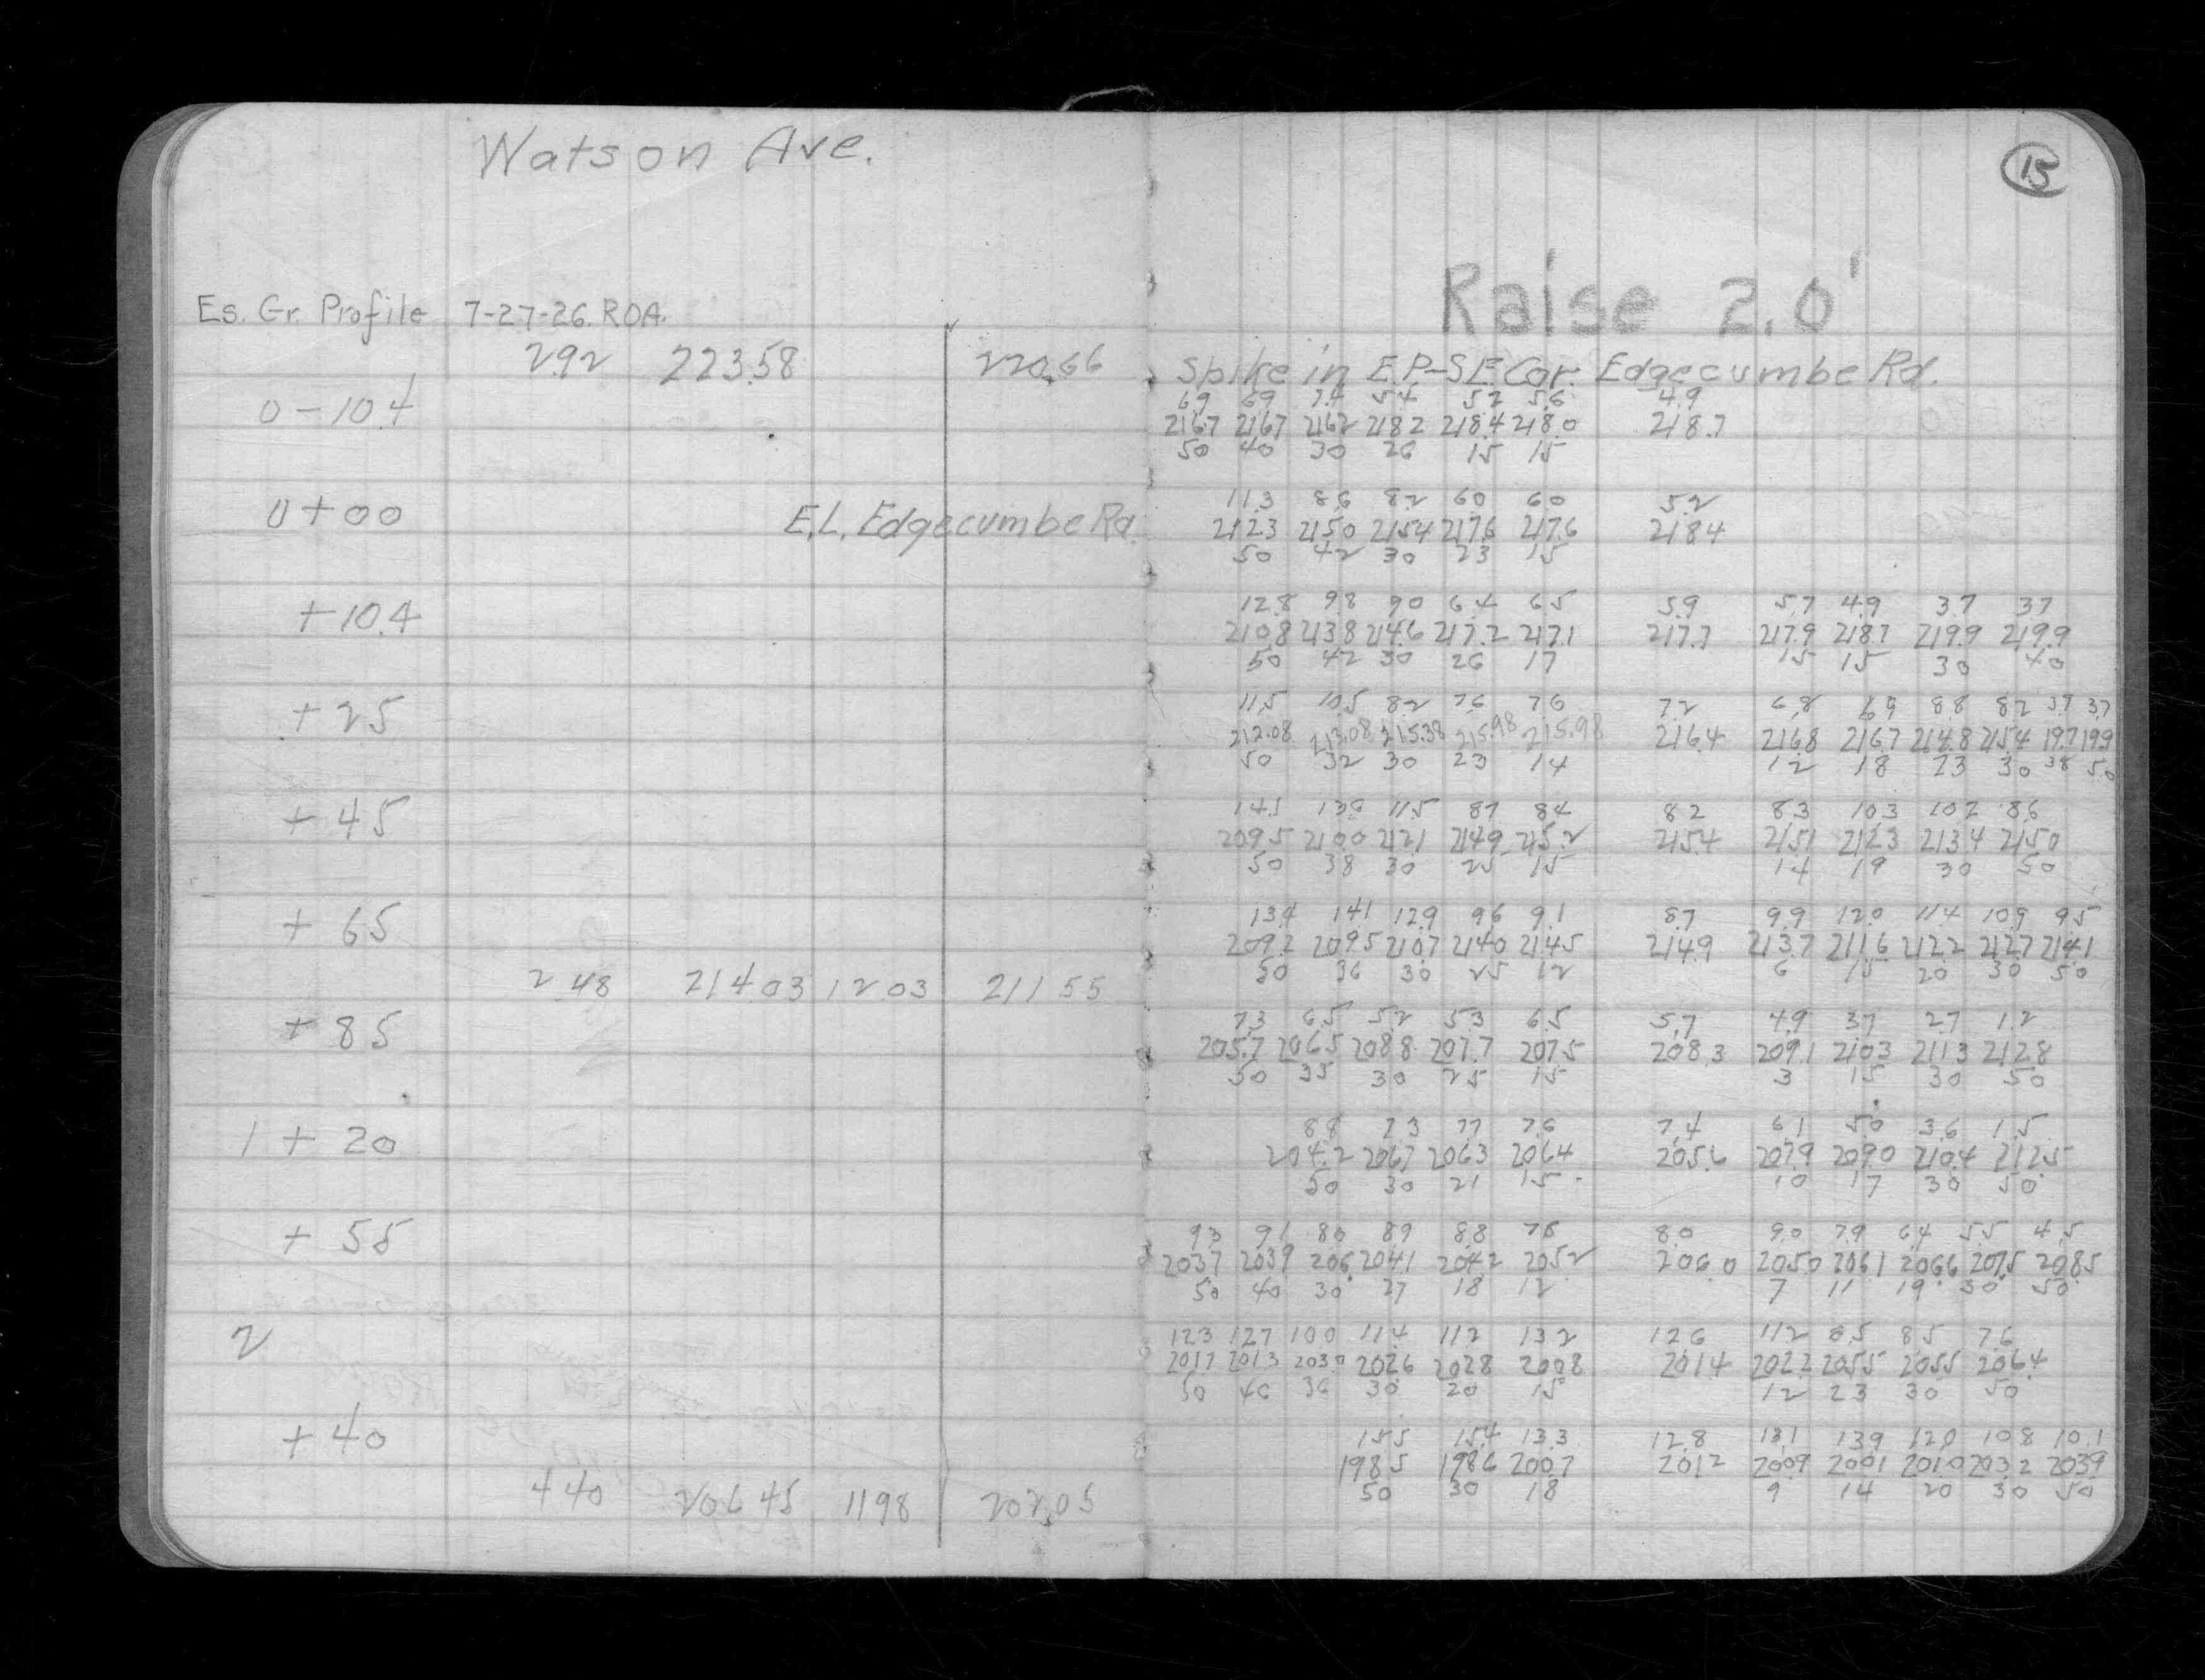 Watson Ave.
15
Raise 2.0'
Es. Gr. Profile 7-27-26. ROA.
2.92 223.58 220.66 Spike in E.P-S.E. Cor. Edgecumbe Rd.
6.9 6.9 7.4 5.4 5.2 5.6 4.9
0-10.4 216.7 216.7 216.2 218.2 218.4 218.0 218.7
50 40 30 26 15 15
11.3 8.6 8.2 6.0 6.0 5.2
0+00 E.L. Edgecumbe Rd. 212.3 215.0 215.4 217.6 217.6 218.4
50 42 30 23 15
12.8 9.8 9.0 6.4 6.5 5.9 5.7 4.9 3.7 3.7
+10.4 210.8 213.8 214.6 217.2 217.1 217.7 217.9 218.7 219.9 219.9
50 42 30 26 17 15 15 30 40
11.5 10.5 8.2 7.6 7.6 7.2 6.8 6.9 8.8 8.2 3.7 3.7
+25 212.08 213.08 215.38 215.98 215.98 216.4 216.8 216.7 214.8 215.4 19.7 19.9
50 32 30 23 14 12 18 23 30 38 50
14.1 13.6 11.5 8.7 8.4 8.2 8.3 10.3 10.2 8.6
+45 209.5 210.0 212.1 214.9 215.2 215.4 215.1 212.3 213.4 215.0
50 38 30 25 15 14 19 30 50
13.4 14.1 12.9 9.6 9.1 8.7 9.9 12.0 11.4 10.9 9.5
+65 209.2 209.5 210.7 214.0 214.5 214.9 213.7 211.6 212.2 212.7 214.1
50 36 30 25 12 6 15 20 30 50
2.48 214.03 12.03 211.55
7.3 6.5 5.2 5.3 6.5 5.7 4.9 3.7 2.7 1.2
+85 205.7 206.5 208.8 207.7 207.5 208.3 209.1 210.3 211.3 212.8
50 35 30 25 15 3 15 30 50
8.8 7.3 7.7 7.6 7.4 6.1 5.0 3.6 1.5
1+20 204.2 206.7 206.3 206.4 205.6 207.9 209.0 210.4 212.5
50 30 21 15 10 17 30 50
9.3 9.1 8.0 8.9 8.8 7.8 8.0 9.0 7.9 6.4 5.5 4.5
+55 203.7 203.9 206 204.1 204.2 205.2 206.0 205.0 206.1 206.6 207.5 208.5
50 40 30 27 18 12 7 11 19 30 50
12.3 12.7 10.0 11.4 11.2 13.2 12.6 11.2 8.5 8.5 7.6
2 201.7 201.3 203.0 202.6 202.8 200.8 201.4 202.2 205.5 205.5 206.4
50 46 36 30 20 15 12 23 30 50
15.5 15.4 13.3 12.8 13.1 13.9 12.0 10.8 10.1
+40 198.5 198.6 200.7 201.2 200.9 200.1 201.0 203.2 203.9
50 30 18 9 14 20 30 50
4.40 206.45 11.98 202.05